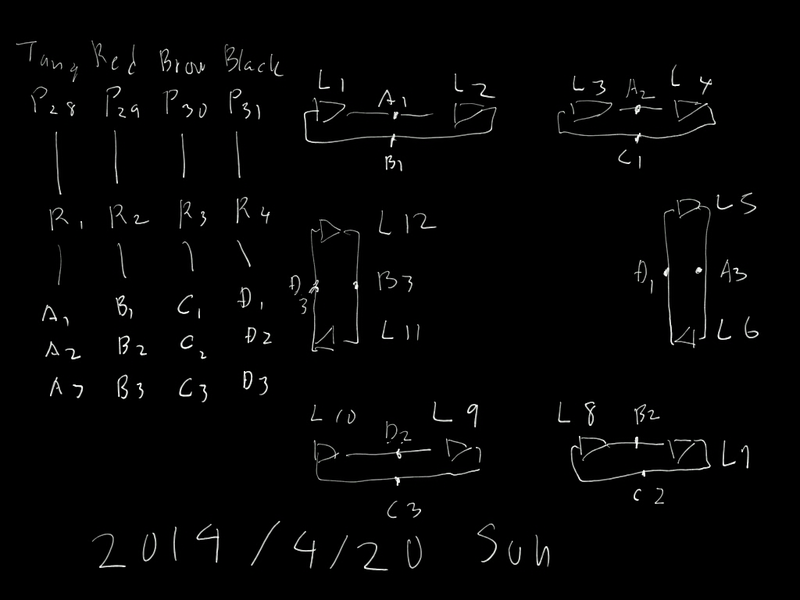 Tang Red Brow Black
P28 P29 P30 P31
R1 R2 R3 R4
A1 B1 C1 D1
A2 B2 C2 D2
A3 B3 C3 D3
L1 A1 L2
B1
L3 A2 L4
C1
L12
D3 B3
L11
L5
D1 A3
L6
L10 D2 L9
C3
L8 B2
L7
C2
2019/4/20 Sun